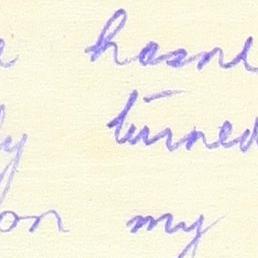 e hasn
ly turned
on my